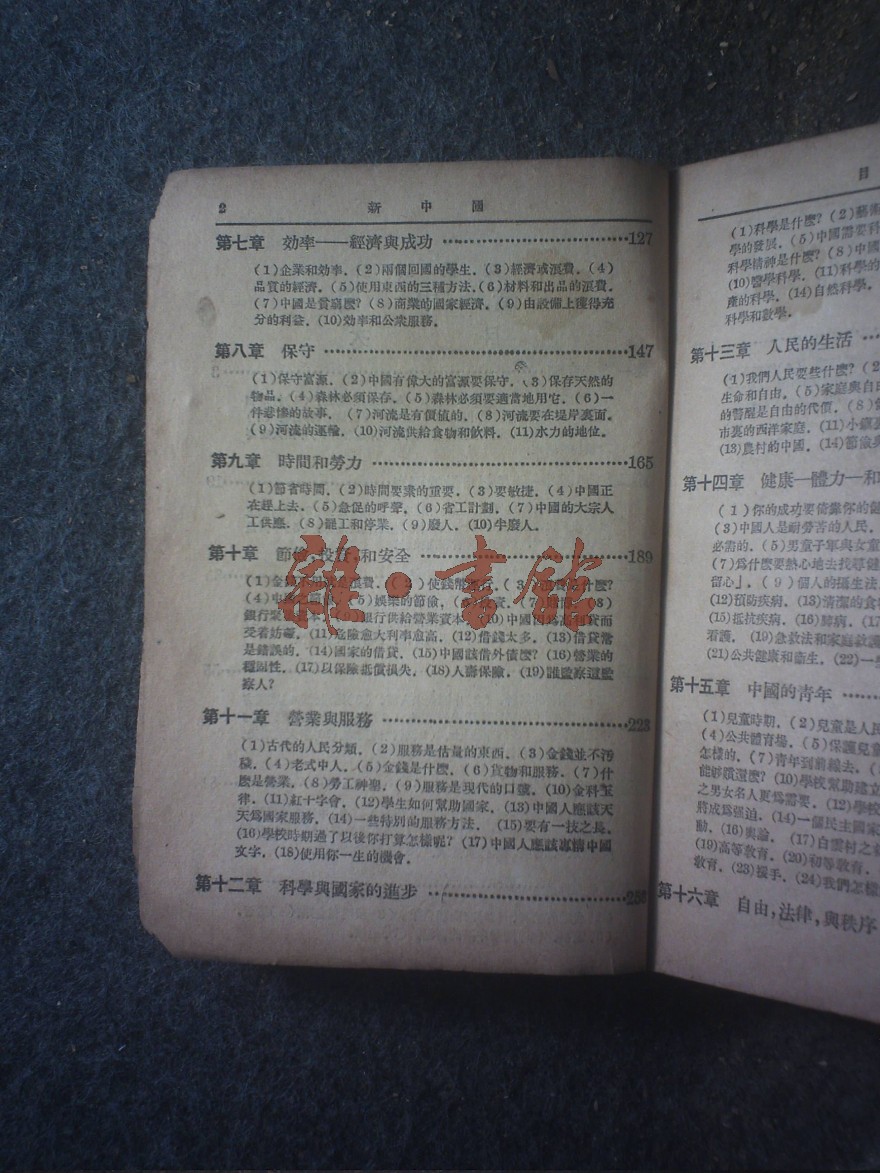 2 新中國
第七章 効率——經濟與成功 127
(1)企業和効率．(2)兩個回國的學生．(3)經濟或浪費．(4)
品質的經濟．(5)使用東西的三種方法．(6)材料和出品的浪費．
(7)中國是貧窮麽？(8)商業的國家經濟．(9)由設備上獲得充
分的利益．(10)効率和公衆服務．
第八章 保守 147
(1)保守富源．(2)中國有偉大的富源要保守．(3)保存天然的
物品．(4)森林必須保存．(5)森林必須要適當地用它．(6)一
件悲慘的故事．(7)河流是有價值的．(8)河流要在堤岸裏面．
(9)河流的運輸．(10)河流供給食物和飲料．(11)水力的地位．
第九章 時間和勞力 165
(1)節省時間．(2)時間要素的重要．(3)要敏捷．(4)中國正
在趕上去．(5)急促的呼聲．(6)省工計劃．(7)中國的大宗人
工供應．(8)罷工和停業．(9)廢人．(10)半廢人．
第十章 節儉，投資，和安全 189
(1)金錢不用就是浪費．(2)使錢幣
(4)中國 (5)娛樂的節儉．
銀行 (9)銀行供給營業資本．(10)中國因爲 而
受着妨礙．(11)危險愈大利率愈高．(12)借錢太多．(13)借貸常
是錯誤的．(14)國家的借貸．(15)中國該借外債麽？(16)營業的
穩固性．(17)以保險抵償損失．(18)人壽保險．(19)誰監察這監
察人？
第十一章 營業與服務 223
(1)古代的人民分類．(2)服務是估量的東西．(3)金錢並不污
穢．(4)老式中人．(5)金錢是什麽．(6)貨物和服務．(7)什
麽是營業．(8)勞工神聖．(9)服務是現代的口號．(10)金科玉
律．(11)紅十字會．(12)學生如何幫助國家．(13)中國人應該天
天爲國家服務．(14)一些特別的服務方法．(15)要有一技之長．
(16)學校時期過了以後你打算怎樣呢？(17)中國人應該專精中國
文字．(18)使用你一生的機會．
第十二章 科學與國家的進步
雜·書館
目
(1)科學是什麽？(2)藝術
學的發展．(5)中國需要科
科學精神是什麽？(8)中國
(10)醫學科學．(11)科學的
產的科學．(14)自然科學．
科學和數學．
第十三章 人民的生活
(1)我們人民要些什麽？(2
生命和自由．(5)家庭與自由
的警醒是自由的代價．(8)
市裏的西洋家庭．(11)小鎮
(13)農村的中國．(14)節儉與
第十四章 健康—體力—和
(1)你的成功要倚靠你的健
(3)中國人是耐勞苦的人民．
必需的．(5)男童子軍與女童
(7)爲什麽要熱心地去找尋健
留心」．(9)個人的攝生法
(12)預防疾病．(13)清潔的食物
(15)抵抗疾病．(16)肺病．(17
看護．(19)急救法和家庭救護
(21)公共健康和衞生．(22)一
第十五章 中國的青年
(1)兒童時期．(2)兒童是人民
(4)公共體育場．(5)保護兒童
怎樣的．(7)青年到前線去．
能够償還麽？(10)學校幫助建立
之男女名人更爲需要．(12)學校
將成爲强迫．(14)一個民主國家
動．(16)輿論．(17)白雲村之
(19)高等教育．(20)初等教育．
教育．(23)援手．(24)我們怎樣
第十六章 自由，法律，與秩序